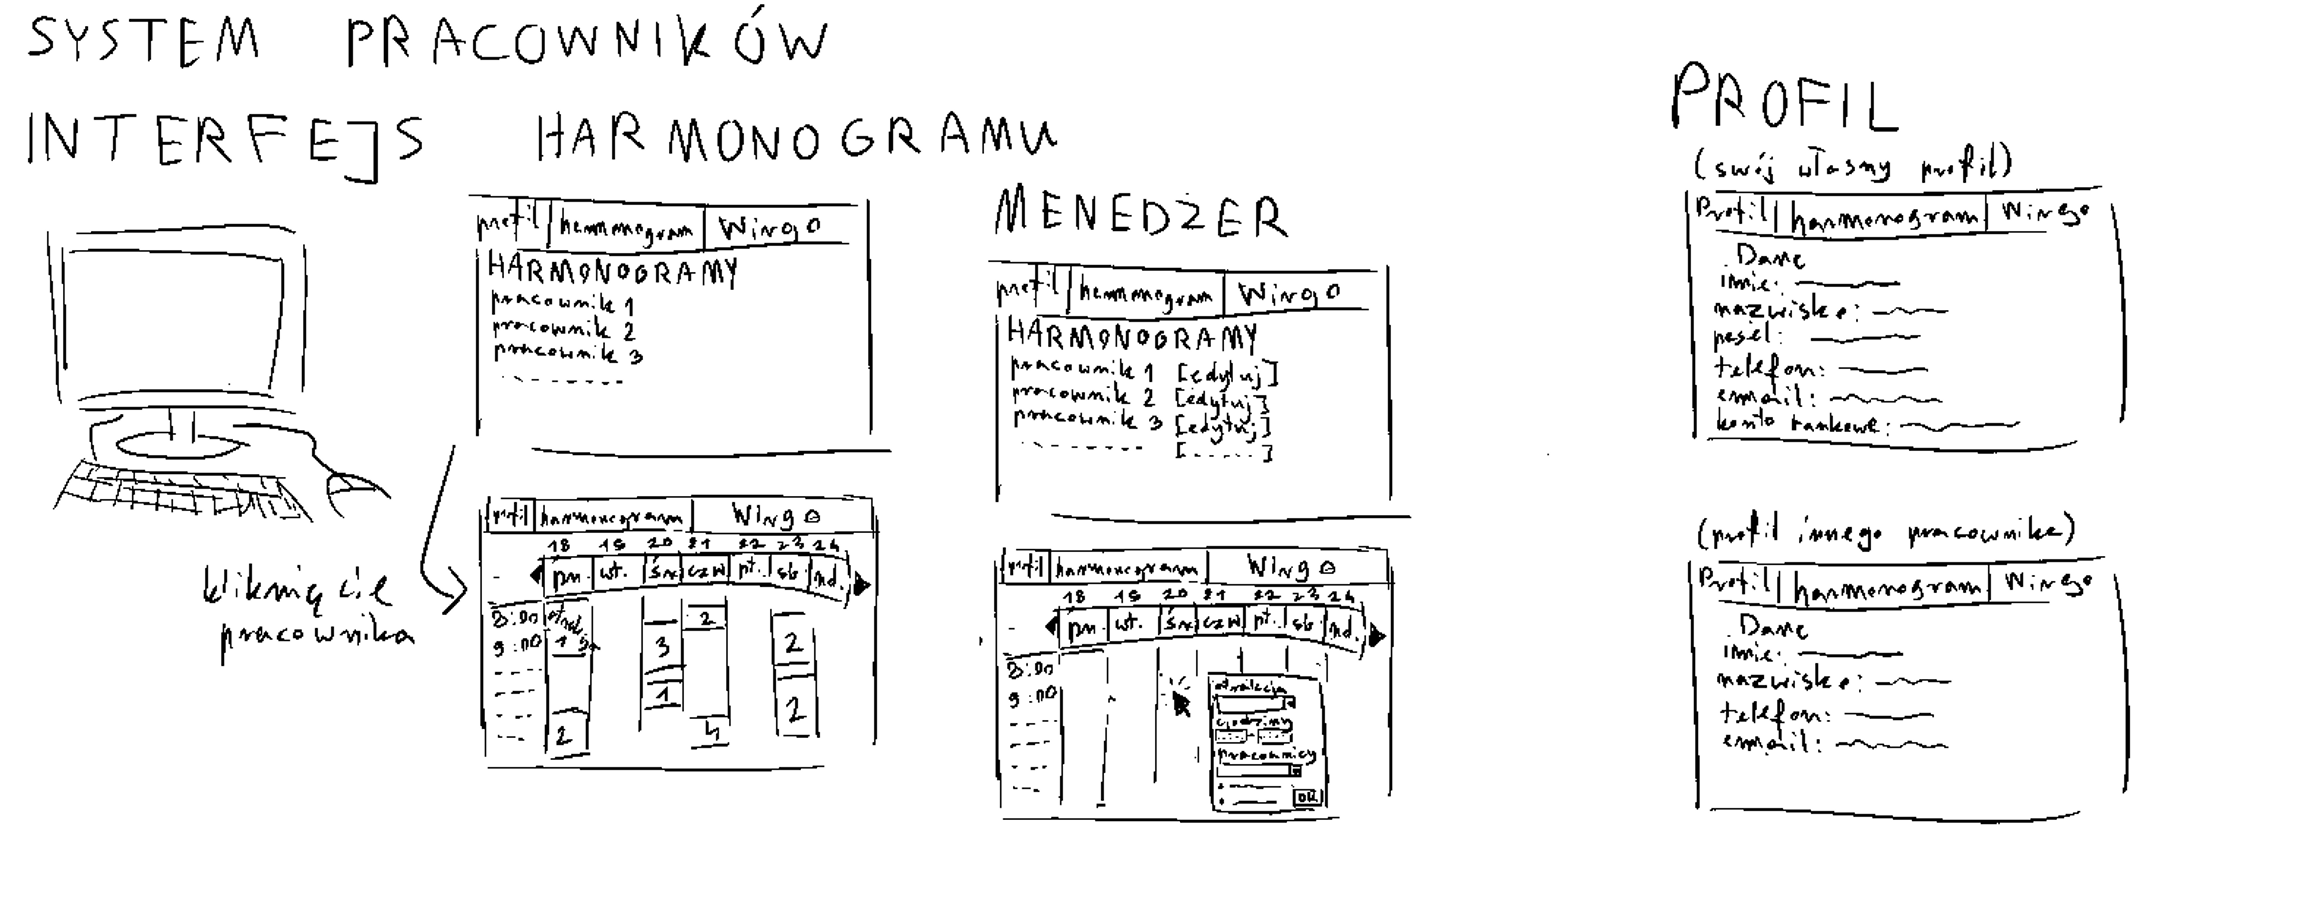 SYSTEM PRACOWNIKÓW
INTERFEJS HARMONOGRAMU
profil harmonogram Wingo
HARMONOGRAMY
pracownik 1
pracownik 2
pracownik 3
kliknięcie
pracownika
profil harmonogram Wingo
18 19 20 21 22 23 24
pn. wt. śr czw pt. sb. nd.
8:00
9:00
1
3
2
2
1
2
2
4
MENEDŻER
profil harmonogram Wingo
HARMONOGRAMY
pracownik 1 [edytuj]
pracownik 2 [edytuj]
pracownik 3 [edytuj]
[.....]
profil harmonogram Wingo
18 19 20 21 22 23 24
pn. wt. śr czw pt. sb. nd.
8:00
9:00
atrakcja
godziny
pracownicy
OK
PROFIL
(swój własny profil)
Profil harmonogram Wingo
Dane
imie:
nazwisko:
pesel:
telefon:
email:
konto bankowe:
(profil innego pracownika)
Profil harmonogram Wingo
Dane
imie:
nazwisko:
telefon:
email: